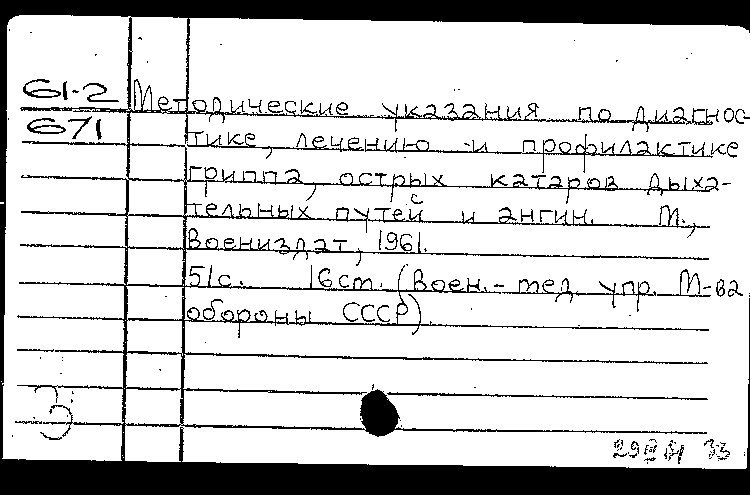 61-2 Методические указания по диагнос-
671 тике, лечению и профилактике
гриппа, острых катаров дыха-
тельных путей и ангин. М.,
Воениздат, 1961.
51с. 16см. (Воен.-мед. упр. М-ва
обороны СССР).
З
33